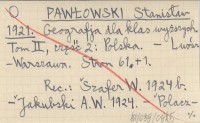 PAWŁOWSKI Stanisław
1921. Geografja dla klas wyższych
Tom II, część 2: Polska. - Lwów
- Warszawa. Stron 61, +1.
Rec.: "Szafer W. 1924 b.
- "Jakubski A.W. 1924. - "Polacz-